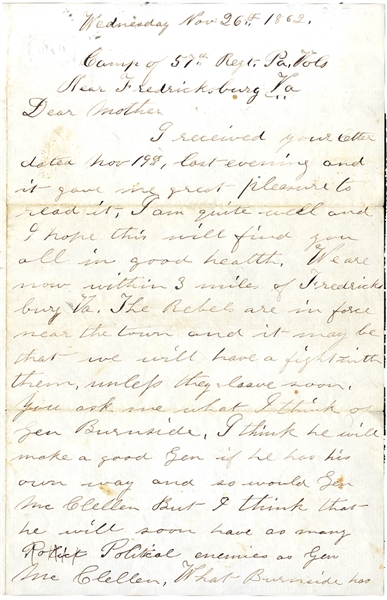 Wednesday Nov 26th 1862.
Camp of 57th Regt. Pa. Vols
Near Fredricksburg Va
Dear Mother
I received your letter
dated Nov 19th, last evening and
it gave me great pleasure to
read it, I am quite well and
I hope this will find you
all in good health. We are
now within 3 miles of Fredricks
burg Va. The Rebels are in force
near the town and it may be
that we will have a fight with
them, unless they leave soon.
You ask me what I think o
Gen Burnside, I think he will
make a good Gen if he has his
own way and so would Gen
Mc Clellen But I think that
he will soon have as many
Political enemies as Gen
Mc Clellen, What Burnside has